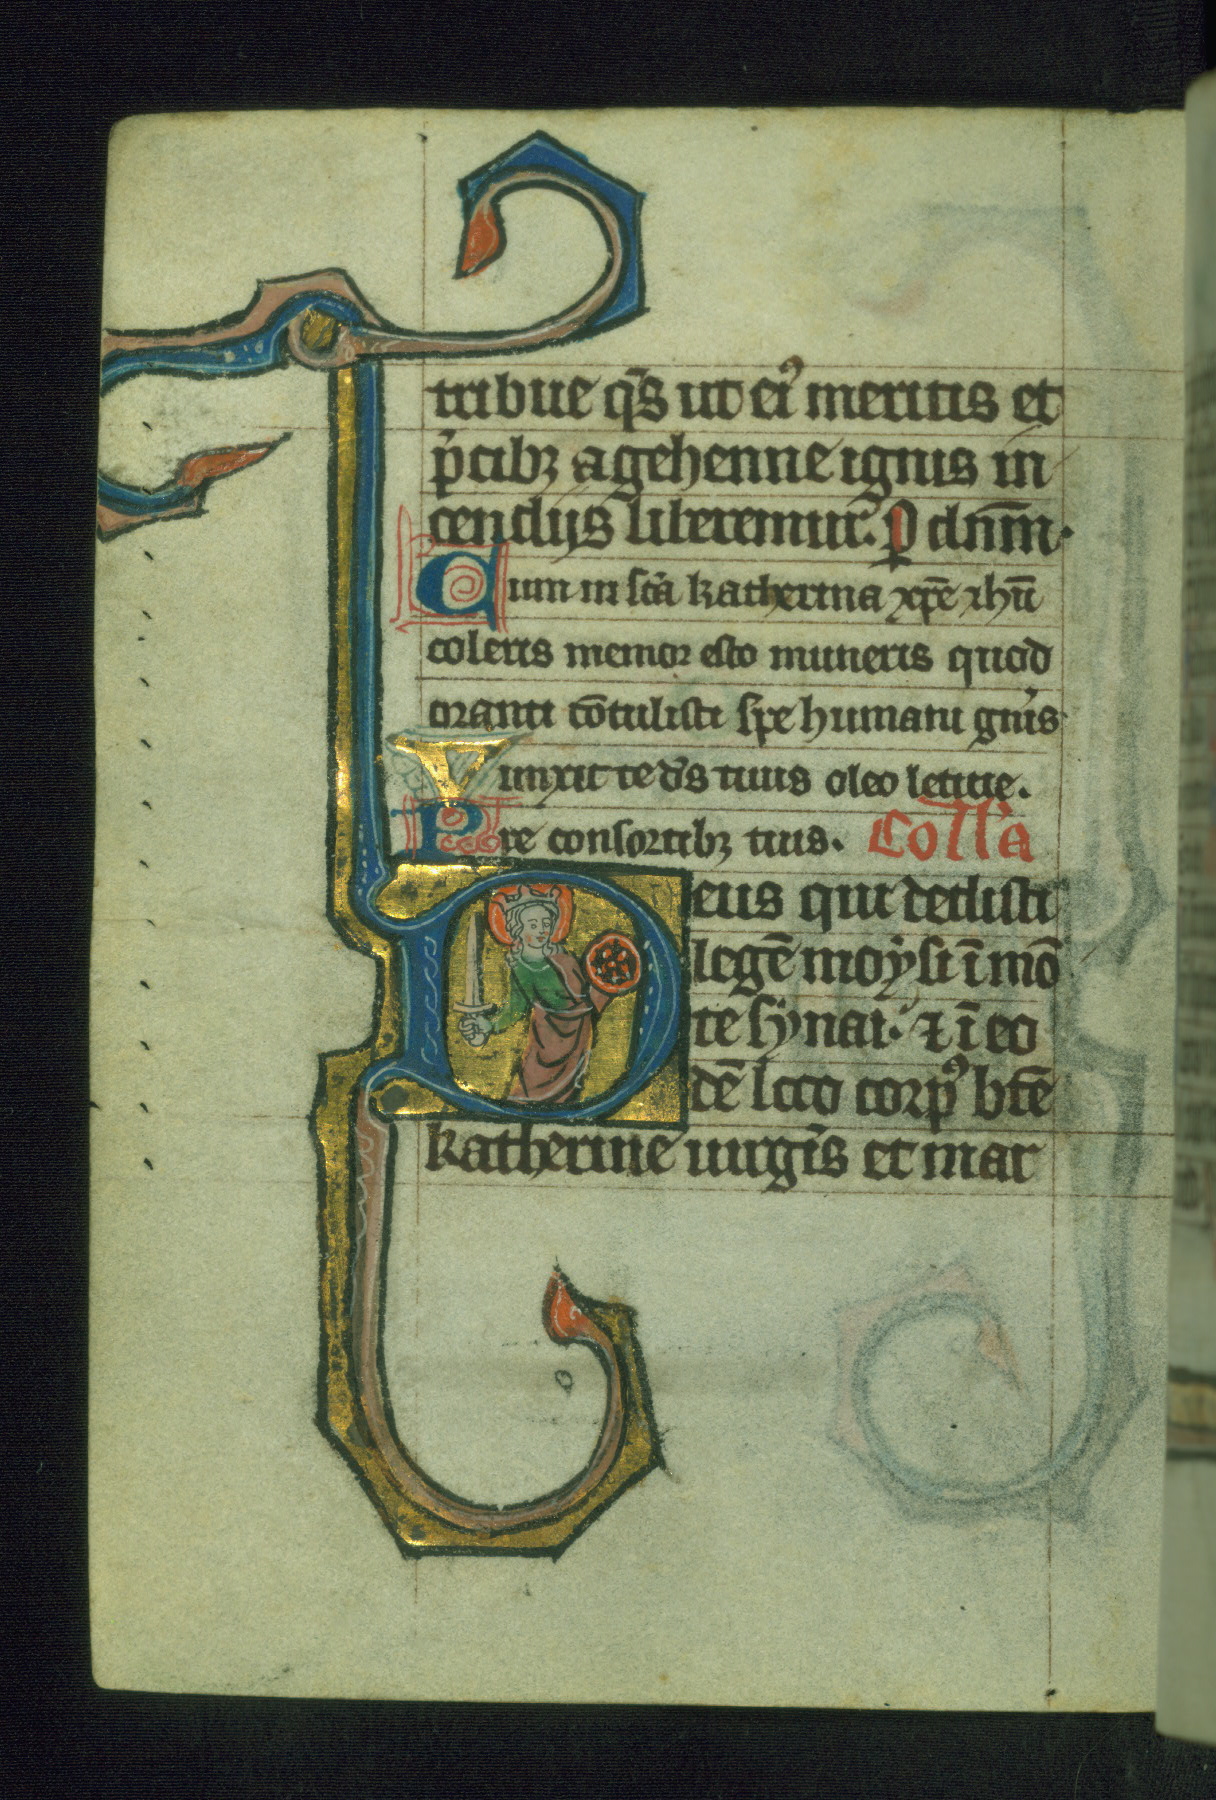 tribue q̄s ut ei᷒ meritis et
p̄cibꝫ a gehenne ignis in
cendijs liberemur. ꝑ dn̄m.
Cum in sc̄a katherina xp̄e ihū
coleris memor esto muneris quod
oranti cōtulisti spe humani gn̄is
Vunxit te ds̄ tuus oleo letitie.
Pre consortibꝫ tuis. Coll̄a
Deus qui dedisti
legē moẏsi ī mō
te sẏnai. ⁊ ī eo
dē loco corp᷒ bt̄e
katherine uirgīs et mar